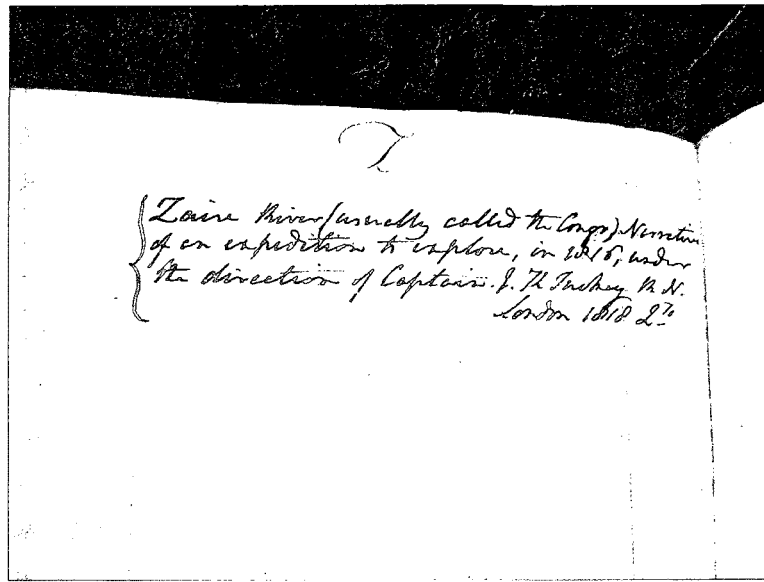 Z
Zaire River (usually called the Congo) Narrative
of an expedition to explore, in 1816, under
the direction of Captain J. K Tuckey R. N.
London 1818 2to